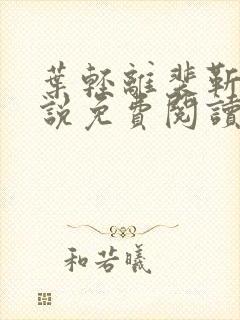 葉輕離裴靳
說免費閱讀
和若曦